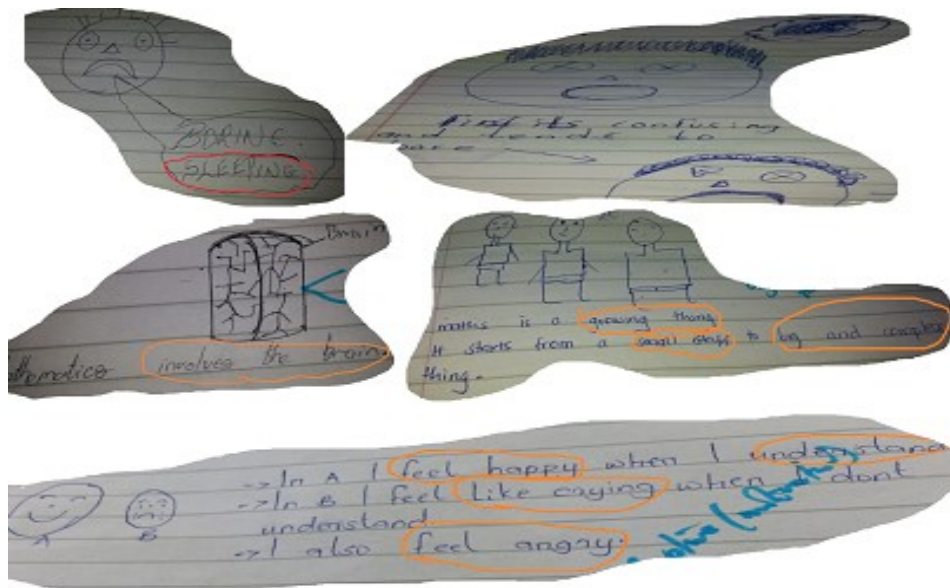 BORING.
SLEEPING
its confusing
and tends to
bore
Brain
thematics involves the brain
maths is a growing thing
It starts from a small stuff to big and complex
thing.
A
B
-> In A I feel happy when I understand
-> In B I feel like crying when I dont
understand
-> I also feel angry.